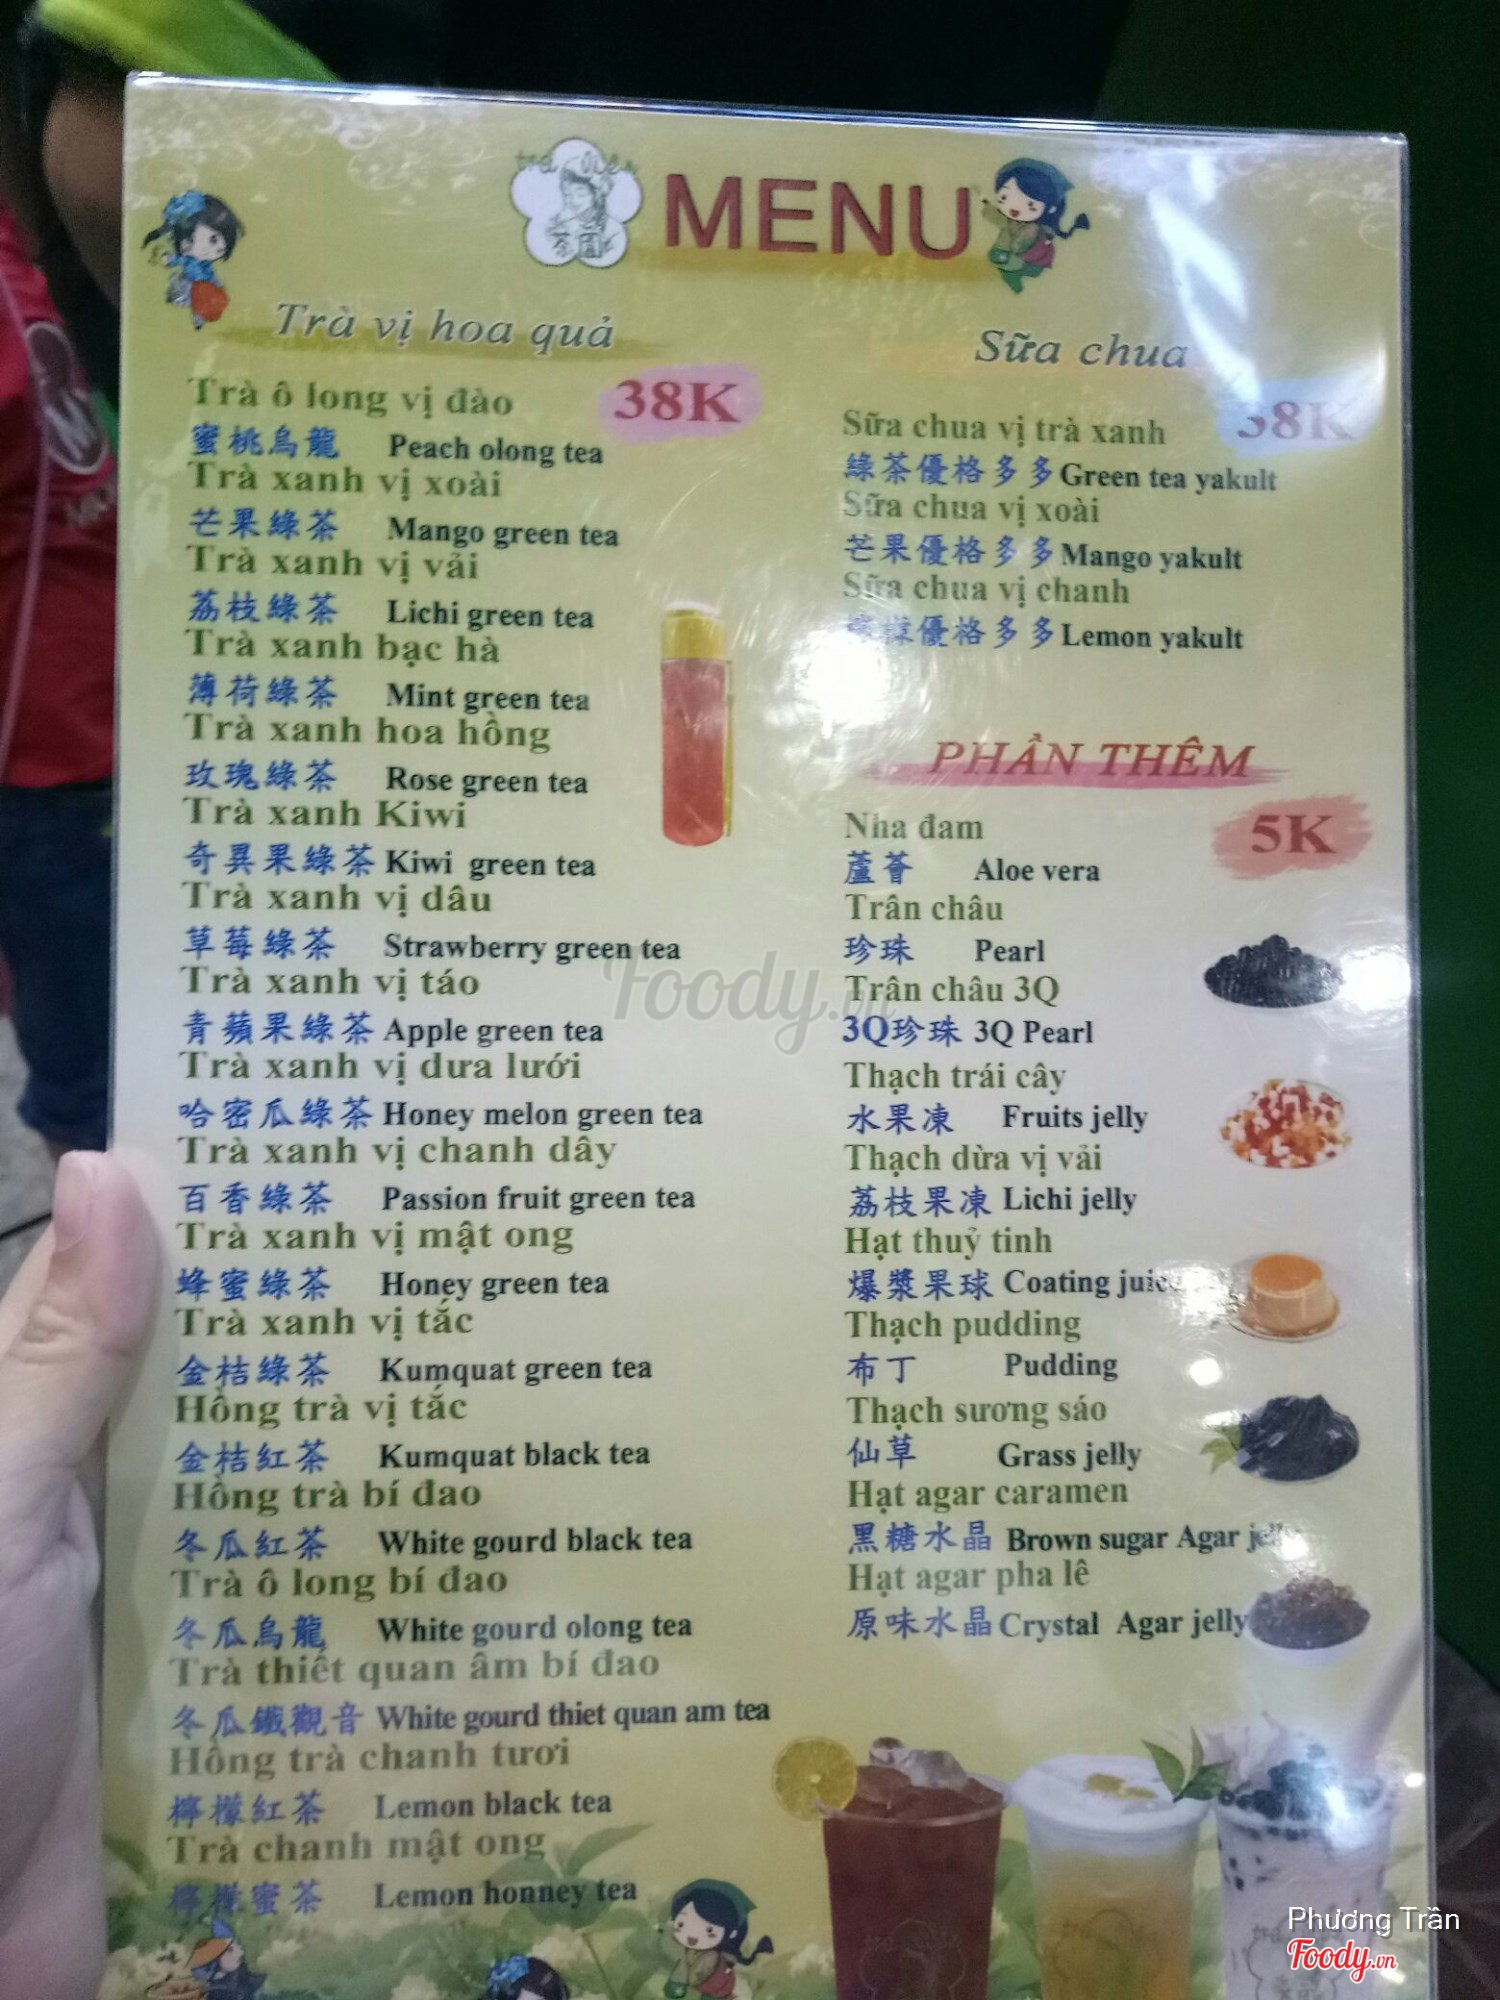 trà viên
茶園
MENU
Trà vị hoa quả
38K
Trà ô long vị đào
蜜桃烏龍 Peach olong tea
Trà xanh vị xoài
芒果綠茶 Mango green tea
Trà xanh vị vải
荔枝綠茶 Lichi green tea
Trà xanh bạc hà
薄荷綠茶 Mint green tea
Trà xanh hoa hồng
玫瑰綠茶 Rose green tea
Trà xanh Kiwi
奇異果綠茶 Kiwi green tea
Trà xanh vị dâu
草莓綠茶 Strawberry green tea
Trà xanh vị táo
青蘋果綠茶 Apple green tea
Trà xanh vị dưa lưới
哈密瓜綠茶 Honey melon green tea
Trà xanh vị chanh dây
百香綠茶 Passion fruit green tea
Trà xanh vị mật ong
蜂蜜綠茶 Honey green tea
Trà xanh vị tắc
金桔綠茶 Kumquat green tea
Hồng trà vị tắc
金桔紅茶 Kumquat black tea
Hồng trà bí đao
冬瓜紅茶 White gourd black tea
Trà ô long bí đao
冬瓜烏龍 White gourd olong tea
Trà thiết quan âm bí đao
冬瓜鐵觀音 White gourd thiet quan am tea
Hồng trà chanh tươi
檸檬紅茶 Lemon black tea
Trà chanh mật ong
檸檬蜜茶 Lemon honney tea
Sữa chua
38K
Sữa chua vị trà xanh
綠茶優格多多 Green tea yakult
Sữa chua vị xoài
芒果優格多多 Mango yakult
Sữa chua vị chanh
檸檬優格多多 Lemon yakult
PHẦN THÊM
5K
Nha đam
蘆薈 Aloe vera
Trân châu
珍珠 Pearl
Trân châu 3Q
3Q珍珠 3Q Pearl
Thạch trái cây
水果凍 Fruits jelly
Thạch dừa vị vải
荔枝果凍 Lichi jelly
Hạt thuỷ tinh
爆漿果球 Coating juice
Thạch pudding
布丁 Pudding
Thạch sương sáo
仙草 Grass jelly
Hạt agar caramen
黑糖水晶 Brown sugar Agar jelly
Hạt agar pha lê
原味水晶 Crystal Agar jelly
Foody.vn
Phương Trần
Foody.vn